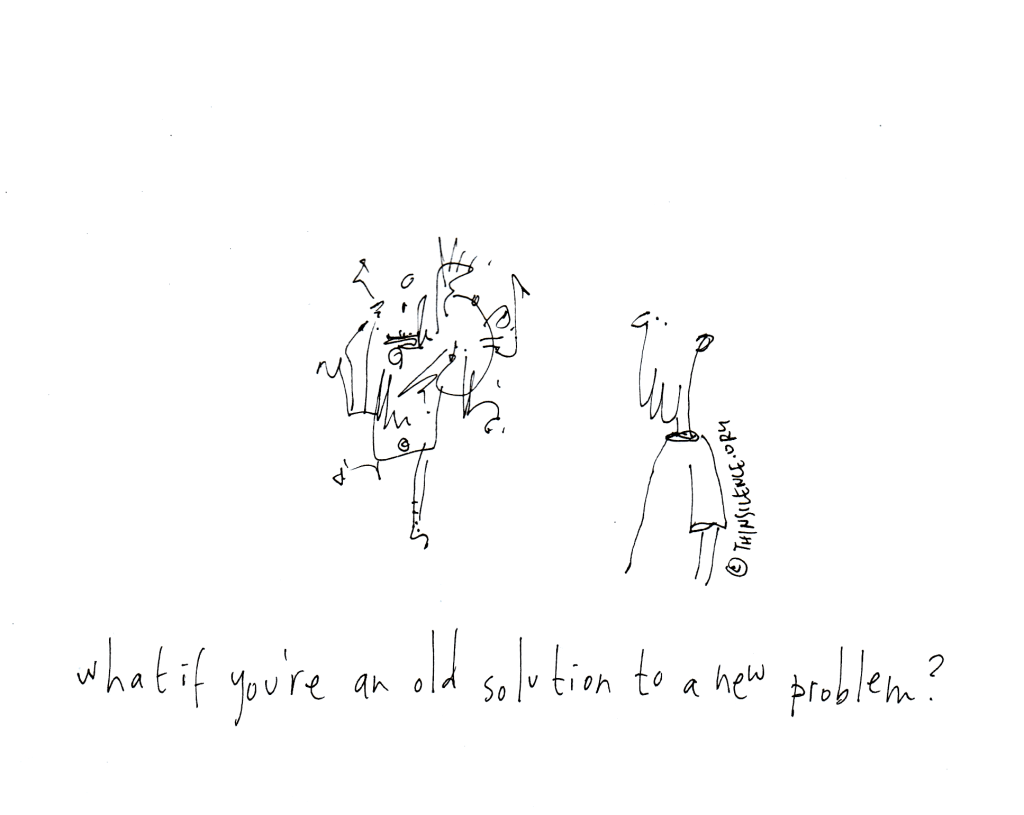 © THINSILENCE.ORG
what if you're an old solution to a new problem?